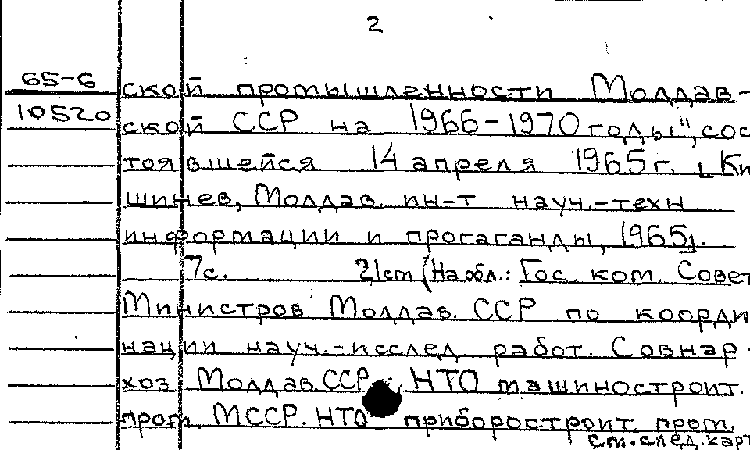 2
65-6 ской промышленности Молдав-
10520 ской ССР на 1966-1970 годы", сос
тоявшейся 14 апреля 1965 г. Ки
шинев, Молдав. ин-т науч.-техн
информации и пропаганды, 1965.
7с. 21см (На обл.: Гос ком. Совет
Министров Молдав. ССР по коорди
нации науч.-исслед работ. Совнар-
хоз Молдав. ССР. НТО машиностроит.
пром. МССР. НТО приборостроит. пром.
см. след. карт